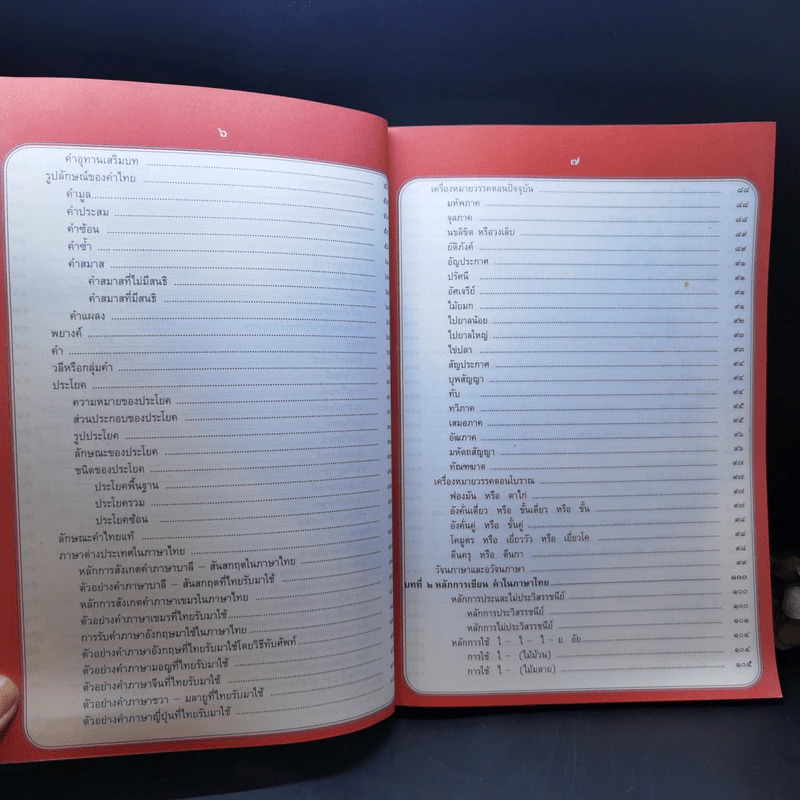 ๖
คำอุทานเสริมบท
รูปลักษณ์ของคำไทย
คำมูล
คำประสม
คำซ้อน
คำซ้ำ
คำสมาส
คำสมาสที่ไม่มีสนธิ
คำสมาสที่มีสนธิ
คำแผลง
พยางค์
คำ
วลีหรือกลุ่มคำ
ประโยค
ความหมายของประโยค
ส่วนประกอบของประโยค
รูปประโยค
ลักษณะของประโยค
ชนิดของประโยค
ประโยคพื้นฐาน
ประโยครวม
ประโยคซ้อน
ลักษณะคำไทยแท้
ภาษาต่างประเทศในภาษาไทย
หลักการสังเกตคำภาษาบาลี – สันสกฤตในภาษาไทย
ตัวอย่างคำภาษาบาลี – สันสกฤตที่ไทยรับมาใช้
หลักการสังเกตคำภาษาเขมรในภาษาไทย
ตัวอย่างคำภาษาเขมรที่ไทยรับมาใช้
การรับคำภาษาอังกฤษมาใช้ในภาษาไทย
ตัวอย่างคำภาษาอังกฤษที่ไทยรับมาใช้โดยวิธีทับศัพท์
ตัวอย่างคำภาษามอญที่ไทยรับมาใช้
ตัวอย่างคำภาษาจีนที่ไทยรับมาใช้
ตัวอย่างคำภาษาชวา – มลายูที่ไทยรับมาใช้
ตัวอย่างคำภาษาญี่ปุ่นที่ไทยรับมาใช้
๗
เครื่องหมายวรรคตอนปัจจุบัน ๘๘
มหัพภาค ๘๘
จุลภาค ๘๘
นขลิขิต หรือวงเล็บ ๘๙
ยัติภังค์ ๘๙
อัญประกาศ ๙๑
ปรัศนี ๙๑
อัศเจรีย์ ๙๑
ไม้ยมก ๙๑
ไปยาลน้อย ๙๒
ไปยาลใหญ่ ๙๓
ไข่ปลา ๙๓
สัญประกาศ ๙๔
บุพสัญญา ๙๔
ทับ ๙๔
ทวิภาค ๙๕
เสมอภาค ๙๕
อัฒภาค ๙๖
มหัตถสัญญา ๙๖
ทัณฑฆาต ๙๗
เครื่องหมายวรรคตอนโบราณ ๙๗
ฟองมัน หรือ ตาไก่ ๙๗
อังคั่นเดี่ยว หรือ ขั้นเดี่ยว หรือ ขั้น ๙๗
อังคั่นคู่ หรือ ขั้นคู่ ๙๘
โคมูตร หรือ เยี่ยววัว หรือ เยี่ยวโค ๙๘
ตีนครุ หรือ ตีนกา ๙๘
วัจนภาษาและอวัจนภาษา ๙๙
บทที่ ๒ หลักการเขียน คำในภาษาไทย ๑๐๐
หลักการประและไม่ประวิสรรชนีย์ ๑๐๐
หลักการประวิสรรชนีย์ ๑๐๐
หลักการไม่ประวิสรรชนีย์ ๑๐๑
หลักการใช้ ใ – ไ – ไ – ย อัย ๑๐๔
การใช้ ใ – (ไม้ม้วน) ๑๐๔
การใช้ ไ – (ไม้มลาย) ๑๐๕